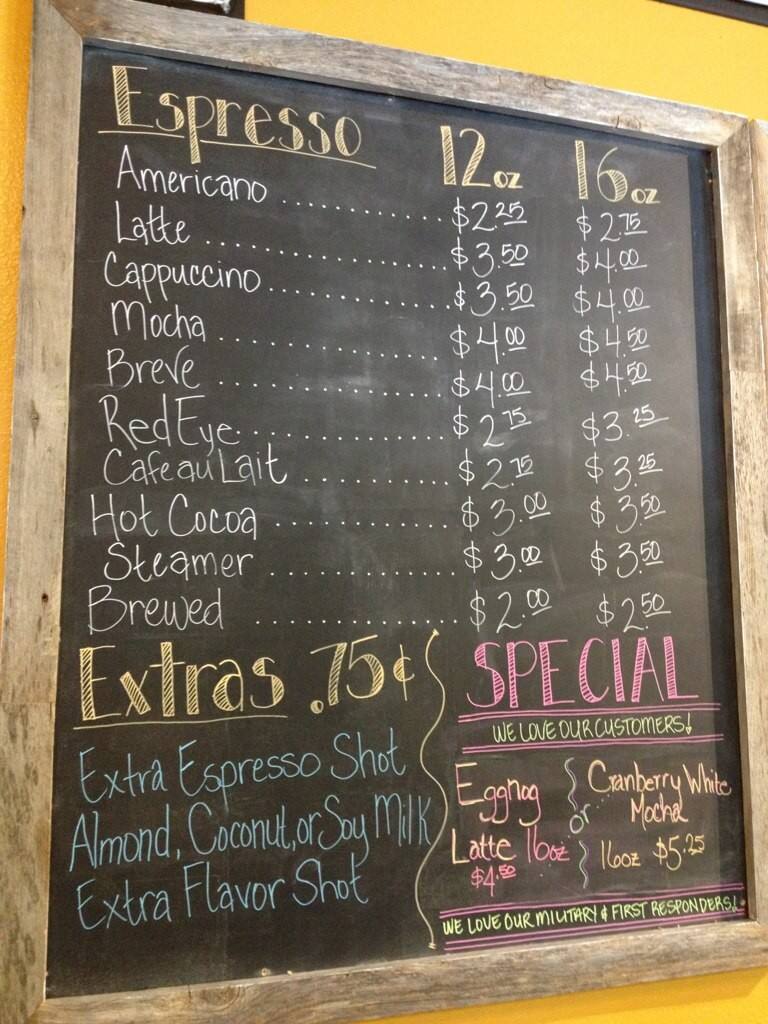 Espresso 12oz 16oz
Americano ............ $2.25 $2.75
Latte ............ $3.50 $4.00
Cappuccino ............ $3.50 $4.00
Mocha ............ $4.00 $4.50
Breve ............ $4.00 $4.50
Red Eye ............ $2.75 $3.25
Cafe au Lait ............ $2.75 $3.25
Hot Cocoa ............ $3.00 $3.50
Steamer ............ $3.00 $3.50
Brewed ............ $2.00 $2.50
Extras .75¢
Extra Espresso Shot
Almond, Coconut, or Soy Milk
Extra Flavor Shot
SPECIAL
WE LOVE OUR CUSTOMERS!
Eggnog
Latte 16oz
$4.50
or
Cranberry White
Mocha
16oz $5.25
WE LOVE OUR MILITARY & FIRST RESPONDERS!